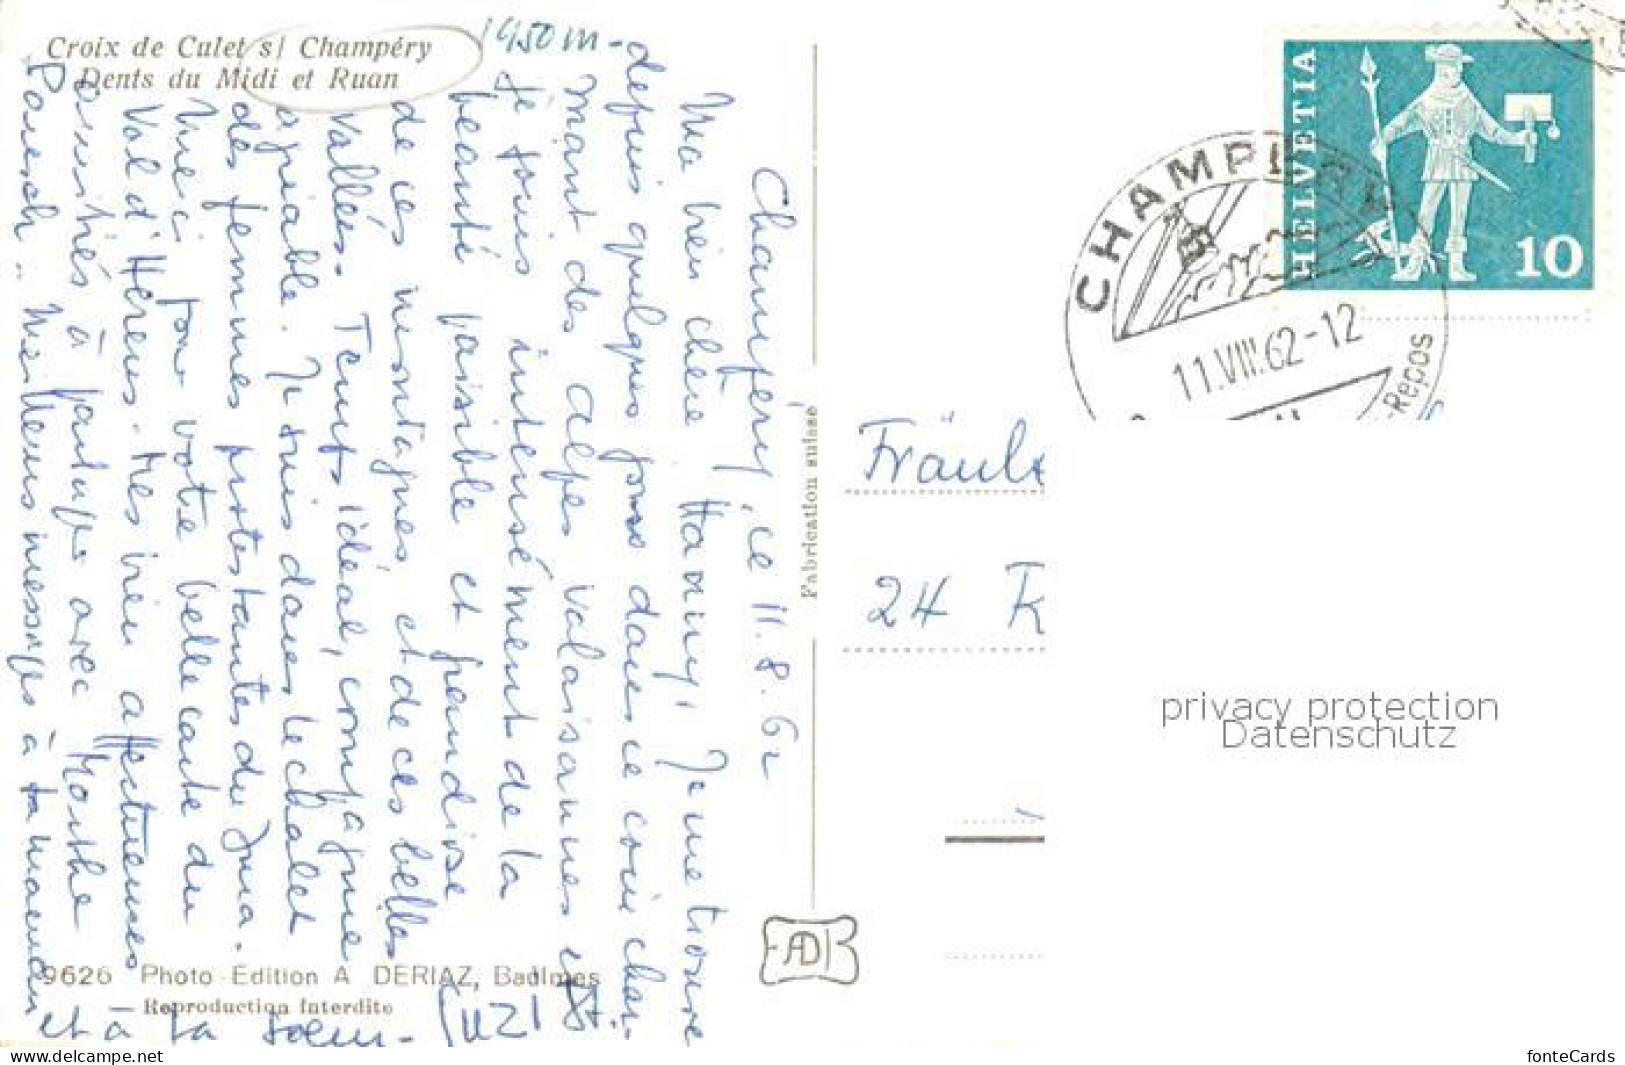 Croix de Culet s/ Champéry
Dents du Midi et Ruan
1450 m -
Champéry, ce 11.8.62
Ma bien chère Hanny! Je me trouve
depuis quelques jours dans ce coin char-
mant des alpes valaisannes et
je jouis intensément de la
beauté paisible et grandiose
de ces montagnes et de ces belles
vallées. Temps idéal, compagnie
agréable. Je suis dans le chalet
des femmes protestantes du Jura.
Merci pour votre belle carte du
Val d'Hérens. Mes bien affectueuses
pensées à partager avec Marthe
Meilleurs messages à ta maman
et à ta sœur
Fabrication suisse
9626 Photo-Edition A DERIAZ, Baulmes
Reproduction Interdite
AD
HELVETIA
10
CHAMPÉRY
11.VIII.62-12
Repos
Fräul
24
privacy protection
Datenschutz
www.delcampe.net
fonteCards